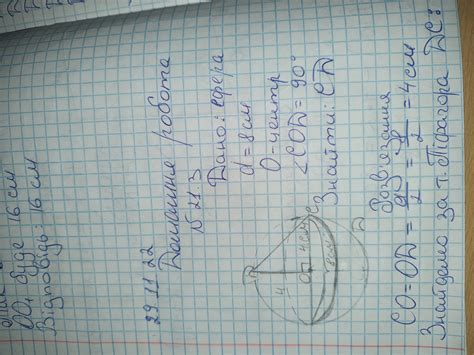 ОО₁ буде 16 см
Відповідь: 16 см
29.11.22
Домашнє робота
№ 21.3
Дано: сфера
d = 8 см
О - центр
∠COD = 90°
Знайти: CD
C
О
4 см
4
8 см
D
Розв'язання
CO = OD = d/2 = 8/2 = 4 см
Знайдемо за т. Піфагора DC: